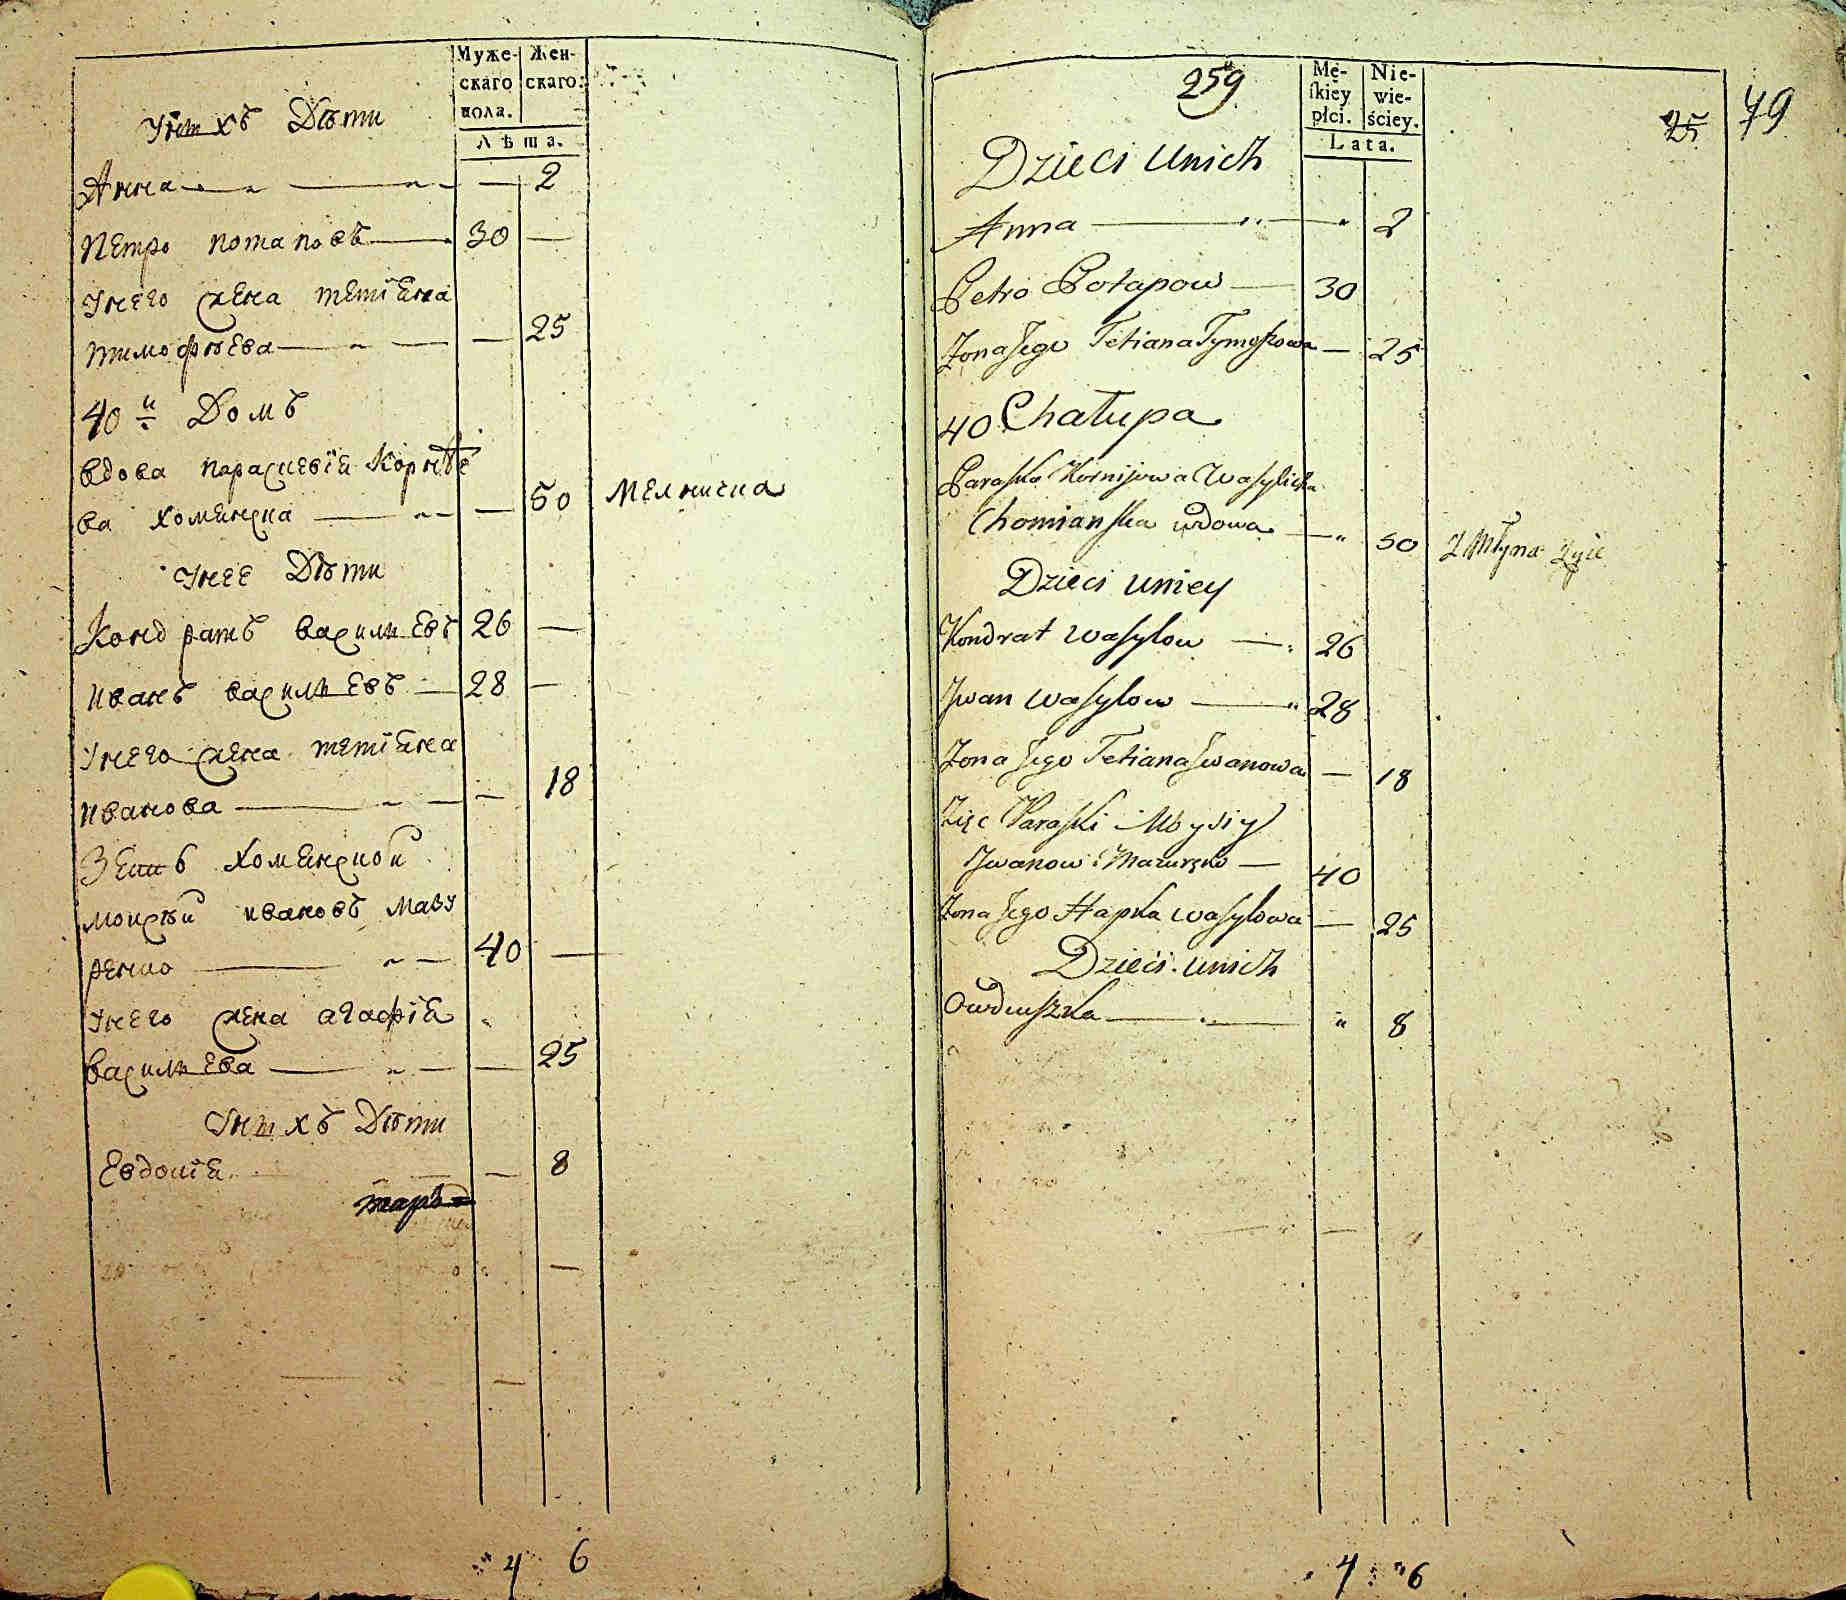 Муже-
скаго
пола.
Жен-
скаго:
Лѣта.
Унихъ Дѣти
Анна — 2
Петро Потаповъ — 30 —
Унего жена тетіѧна
тимофѣева — — 25
40й Домъ
вдова параскевіѧ Корнѣе
ва хомѧнска — — 50 Мелничка
Унее Дѣти
Кондратъ васильевъ 26 —
иванъ васильевъ — 28 —
Унего жена тетіѧна
иванова — — 18
Зять хомѧнской
моисѣй ивановъ мазу
ренко — 40 —
Унего жена агафіѧ
васильева — — 25
Унихъ Дѣти
Евдокіѧ — 8
4 6
259
Mę-
skiey
płci.
Nie-
wie-
ściey.
Lata.
25
79
Dzieci unich
Anna — 2
Petro Potapow — 30
Zona Jego Tetiana Tymoszowa — 25
40 Chałupa
Paraska Kornijowa Wasylicha
Chomianska wdowa — 50 Z Młyna żyie
Dzieci uniey
Kondrat Wasylow — 26
Jwan Wasylow — 28
Zona Jego Tetiana Jwanowa — 18
Zięc Paraski Moysiy
Jwanow Mazurenko — 40
Zona Jego Hapka Wasylowa — 25
Dzieci unich
Owdiuszka — 8
4 6